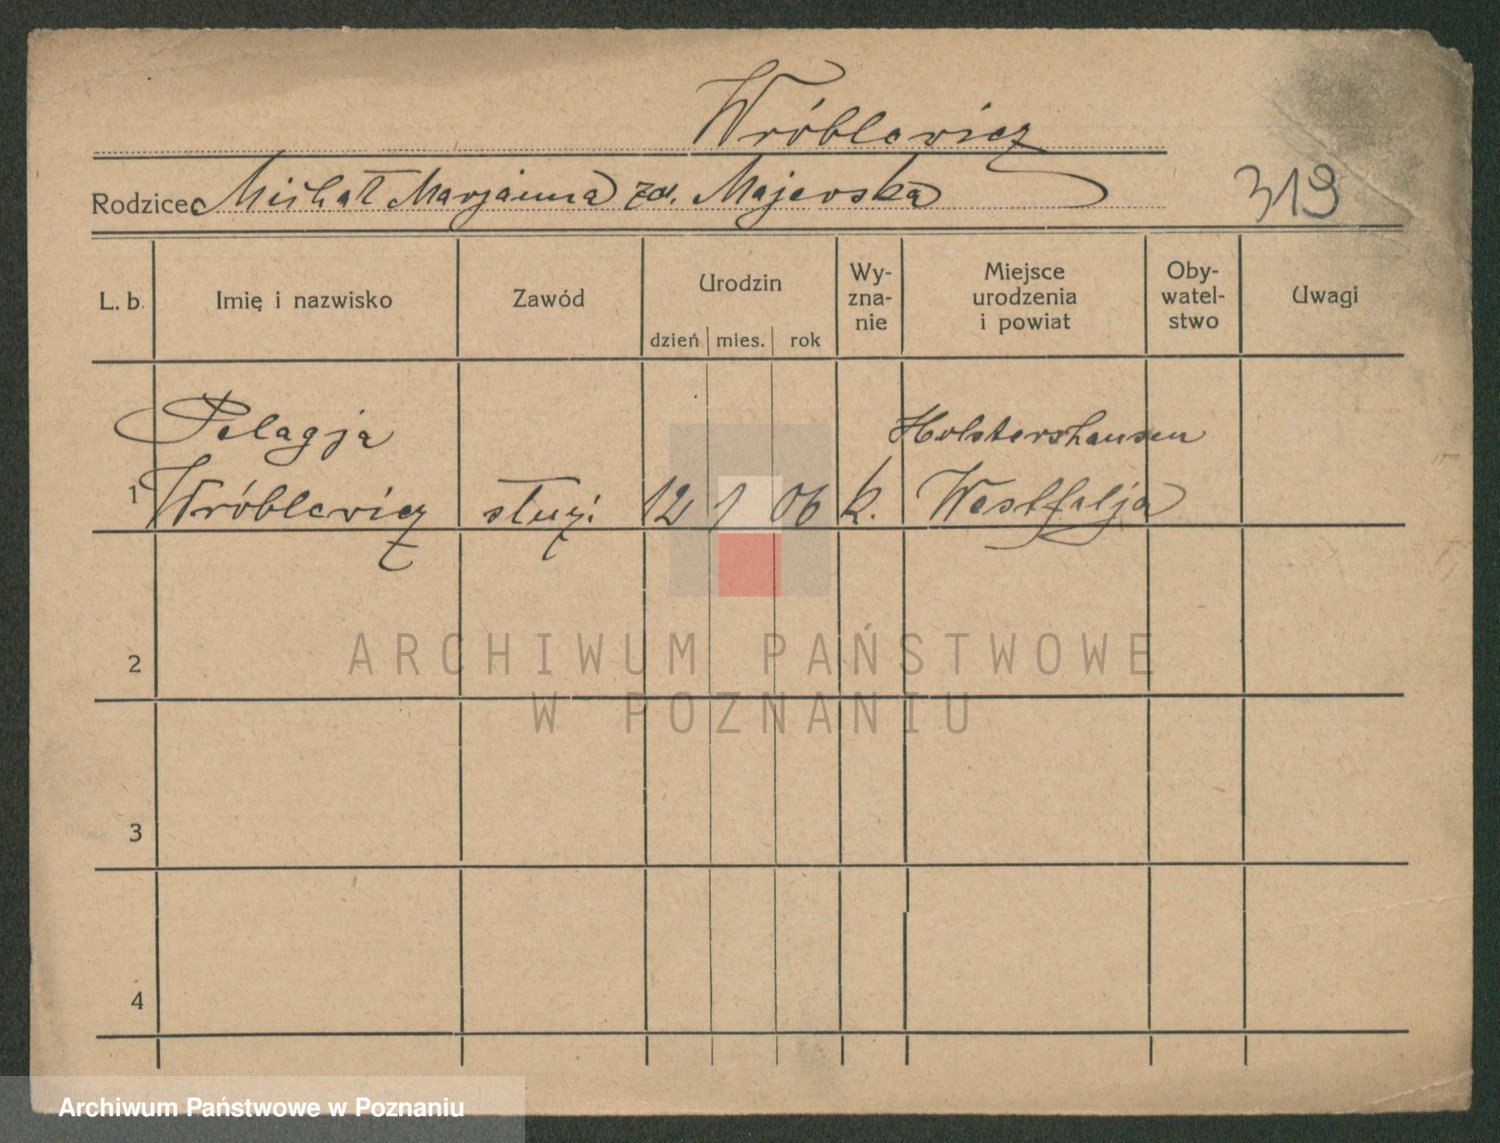 Wróblewicz
Rodzice: Michał Marjanna zd. Majewska
319
L. b.
Imię i nazwisko
Zawód
Urodzin
dzień mies. rok
Wy-
zna-
nie
Miejsce
urodzenia
i powiat
Oby-
watel-
stwo
Uwagi
Pelagja
Holstershausen
1 Wróblewicz służ. 12 1 06 k. Westfalja
2
3
4
ARCHIWUM PAŃSTWOWE
W POZNANIU
Archiwum Państwowe w Poznaniu